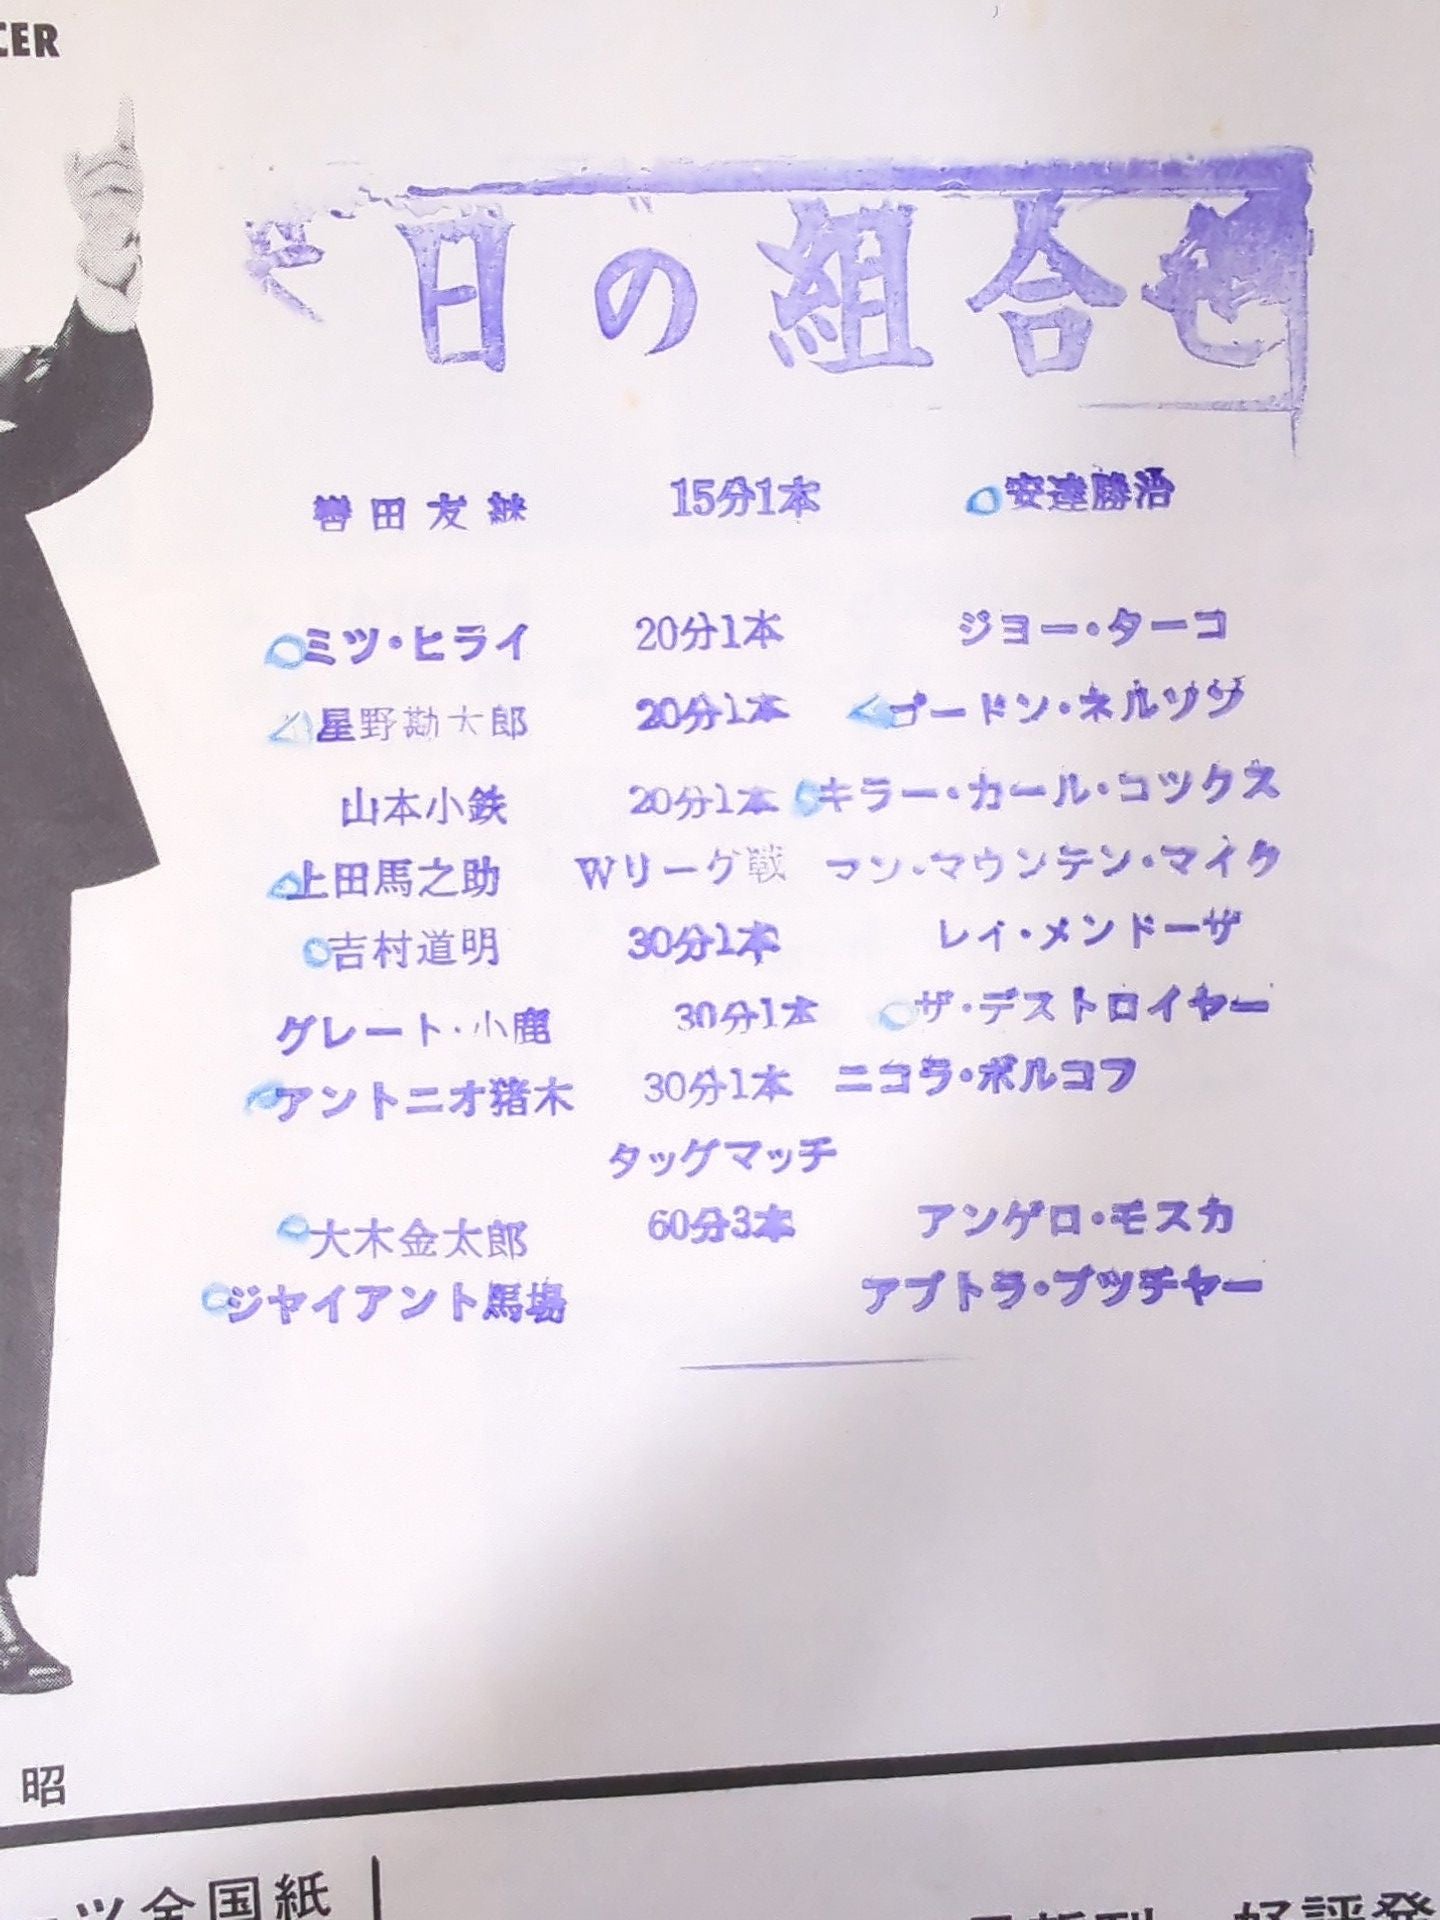 CER
日の組合せ
轡田友継 15分1本 安達勝治
ミツ・ヒライ 20分1本 ジヨー・ターコ
星野勘太郎 20分1本 ゴードン・ネルソン
山本小鉄 20分1本 キラー・カール・コツクス
上田馬之助 Wリーグ戦 マン・マウンテン・マイク
吉村道明 30分1本 レイ・メンドーサ
グレート・小鹿 30分1本 ザ・デストロイヤー
アントニオ猪木 30分1本 ニコラ・ボルコフ
タッグマッチ
大木金太郎 60分3本 アンゲロ・モスカ
ジヤイアント馬場 アブトラ・ブツチヤー
昭
ツ全国紙
好評発